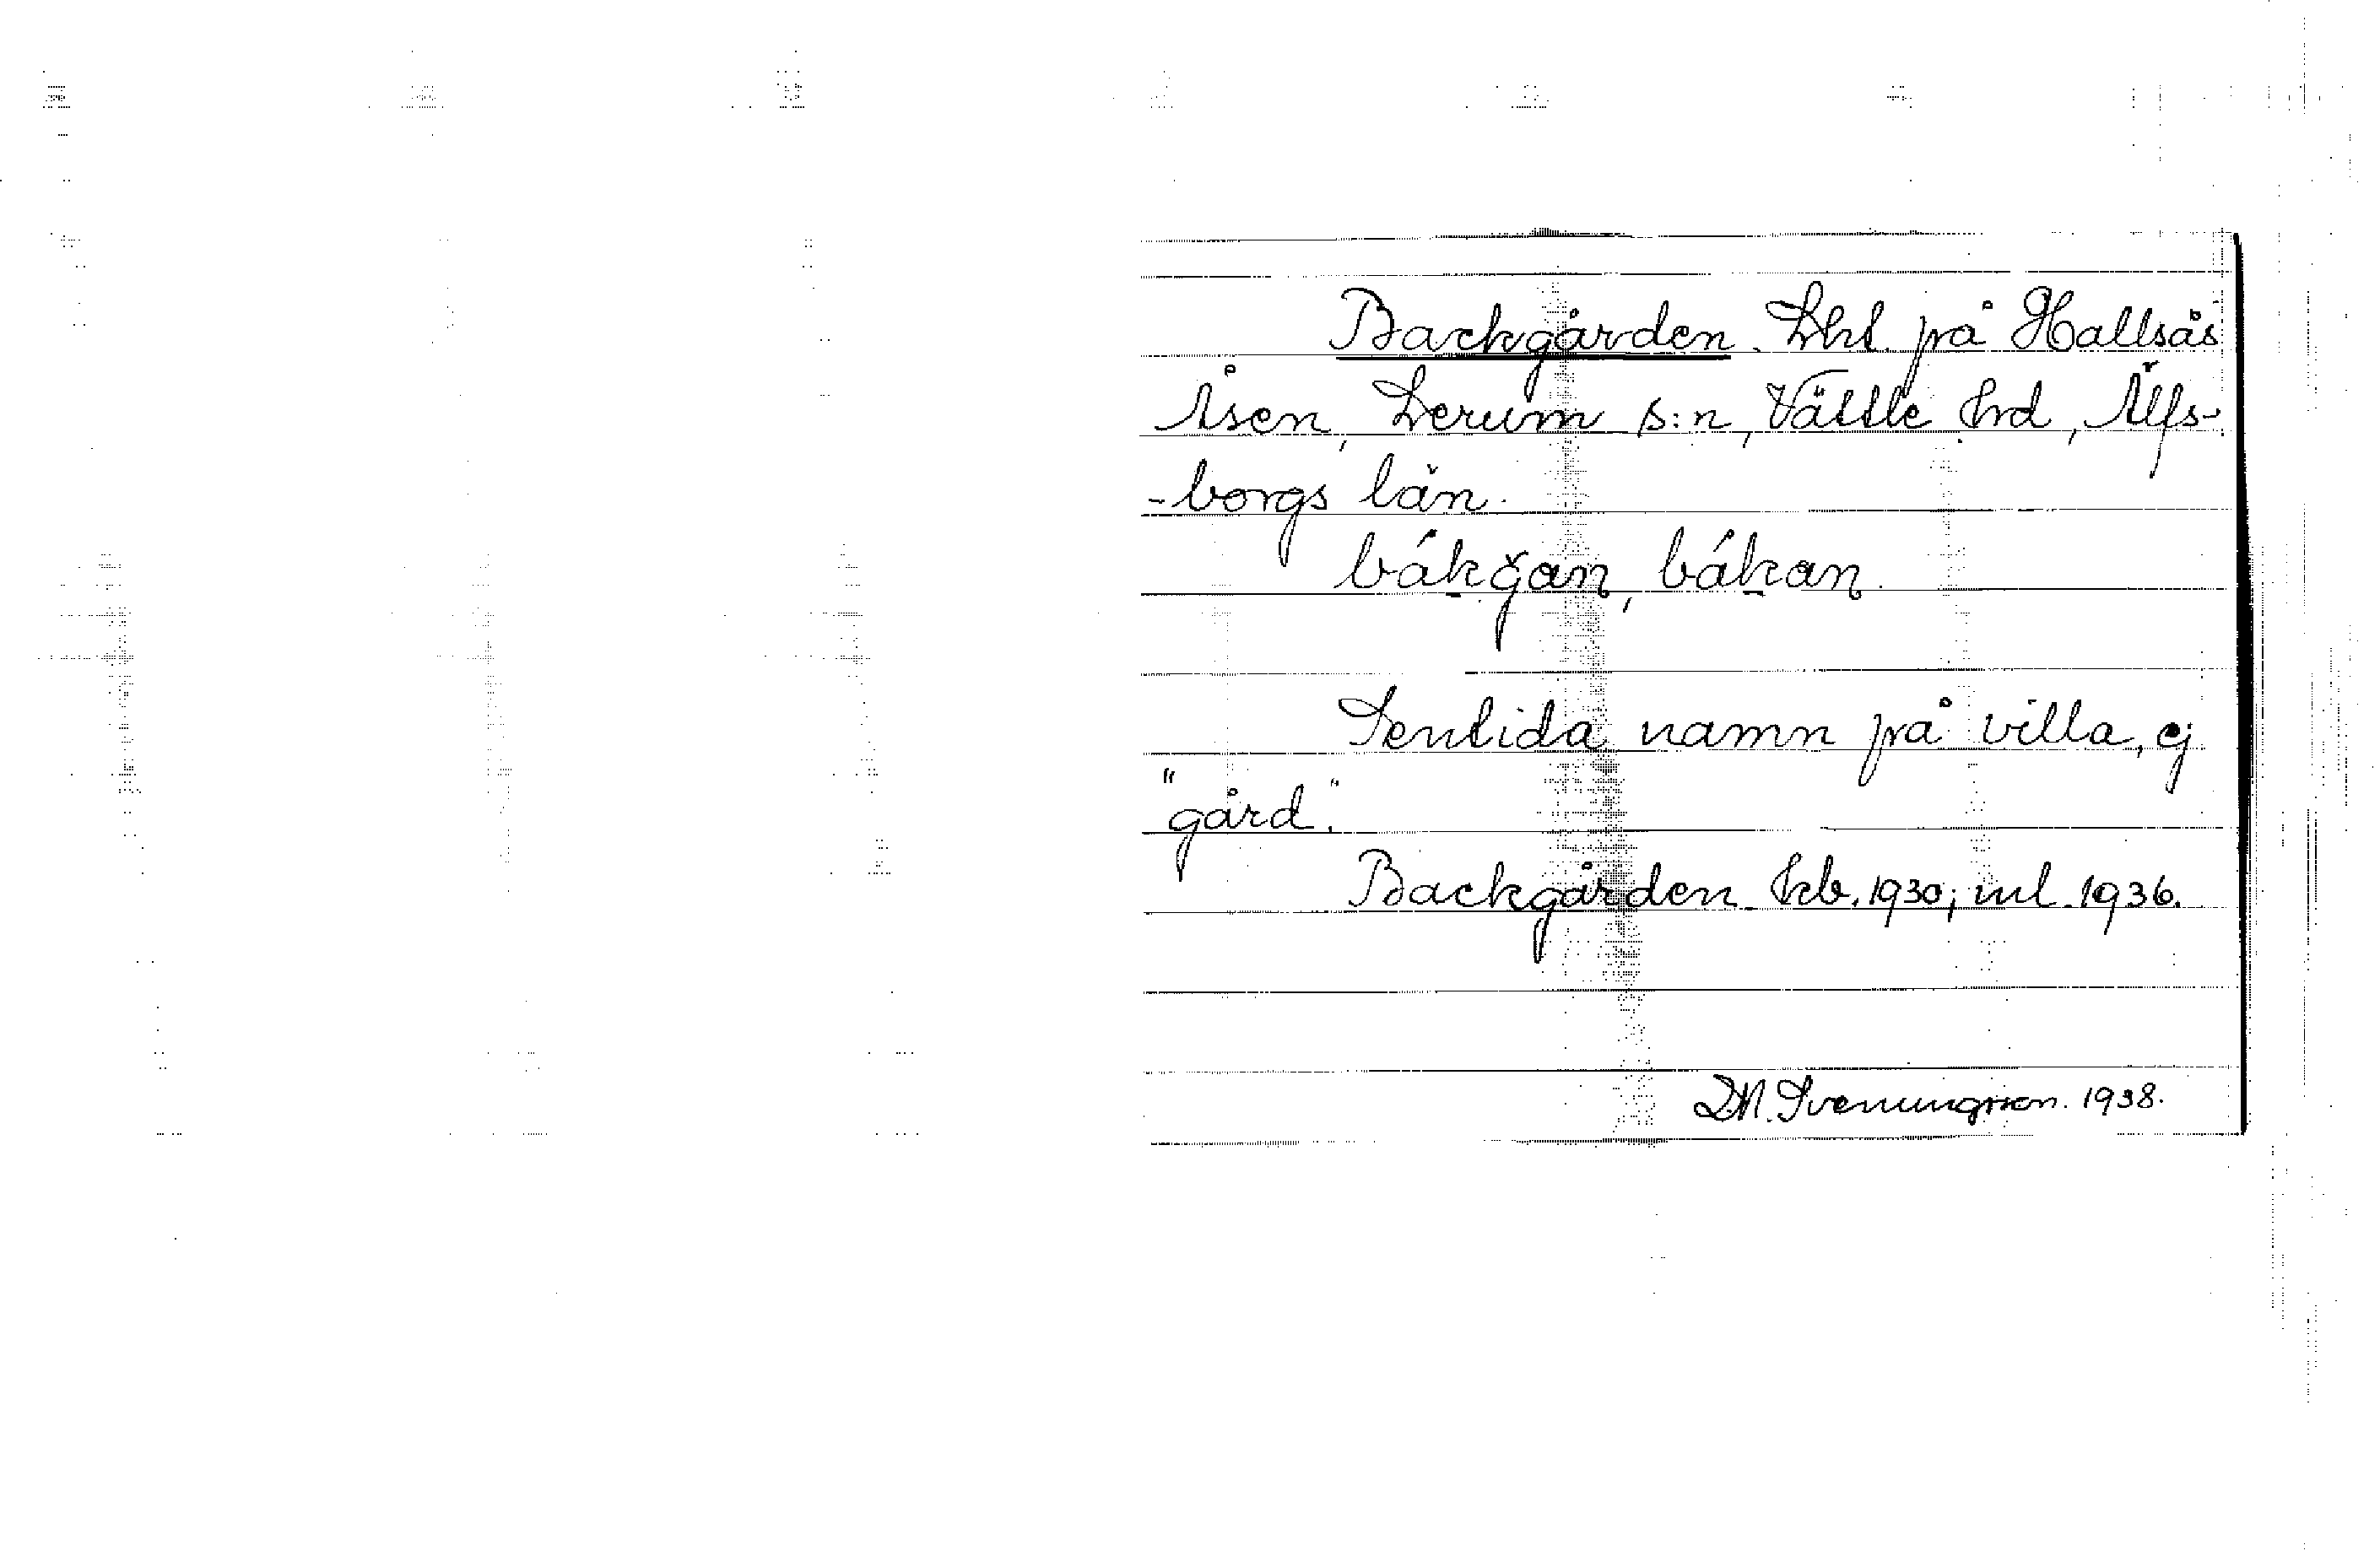 Backgården. Lht. på Hallsås
Åsen, Lerum s:n, Vättle hrd, Älfs-
-borgs län.
bákgan, bákan.
Sentida namn på villa, ej
"gård".
Backgården kb. 1930; ml 1936.
D.M. Svenungsson. 1938.